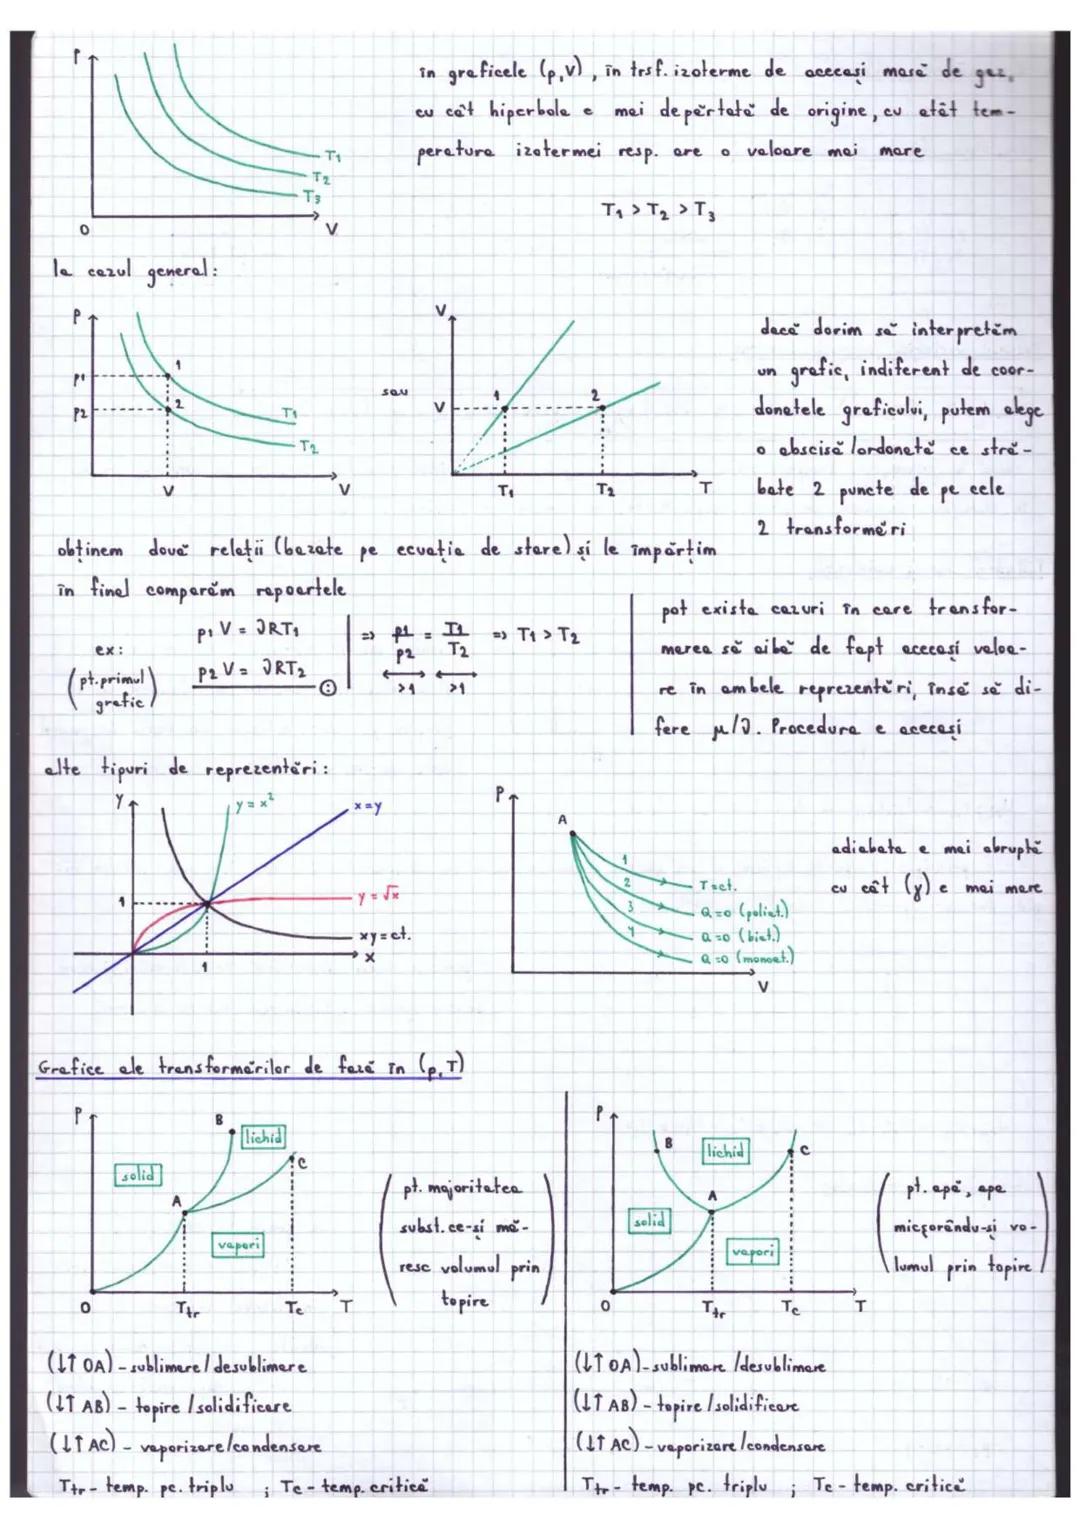 P
T₁
T₂
T₃
0
V
în graficele (p,V), în trsf. izoterme de aceeași masă de gaz,
cu cât hiperbola e mai depărtată de origine, cu atât tem-
peratura izotermei resp. are o valoare mai mare
T₁ > T₂ > T₃
la cazul general:
P
p1
p2
1
2
T₁
T₂
V
V
sau
V
V
1
2
T₁
T₂
T
dacă dorim să interpretăm
un grafic, indiferent de coor-
donatele graficului, putem alege
o abscisă/ordonată ce stră-
bate 2 puncte de pe cele
2 transformări
obținem două relații (bazate pe ecuația de stare) și le împărțim
în final comparăm rapoartele
ex:
(pt. primul
grafic)
p₁V = νRT₁
p₂V = νRT₂
:
=> p1/p2 = T1/T2 => T₁ > T₂
>1 >1
pot exista cazuri în care transfor-
marea să aibă de fapt aceeași valoa-
re în ambele reprezentări, însă să di-
fere μ/ν. Procedura e aceeași
alte tipuri de reprezentări:
y
y = x²
x = y
1
y = √x
xy = ct.
x
1
P
A
1
2
3
4
T=ct.
Q=0 (poliat.)
Q=0 (biat.)
Q=0 (monoat.)
V
adiabata e mai abruptă
cu cât (γ) e mai mare
Grafice ale transformărilor de fază în (p,T)
P
B
lichid
solid
C
A
vapori
0
Ttr
Tc
T
(pt. majoritatea
subst. ce-și mă-
resc volumul prin
topire)
(↓↑ OA) - sublimare/desublimare
(↓↑ AB) - topire/solidificare
(↓↑ AC) - vaporizare/condensare
Ttr - temp. pc. triplu ; Tc - temp. critică
P
B
lichid
C
A
solid
vapori
0
Ttr
Tc
T
(pt. apă, apa
micșorându-și vo-
lumul prin topire)
(↓↑ OA) - sublimare/desublimare
(↓↑ AB) - topire/solidificare
(↓↑ AC) - vaporizare/condensare
Ttr - temp. pc. triplu ; Tc - temp. critică